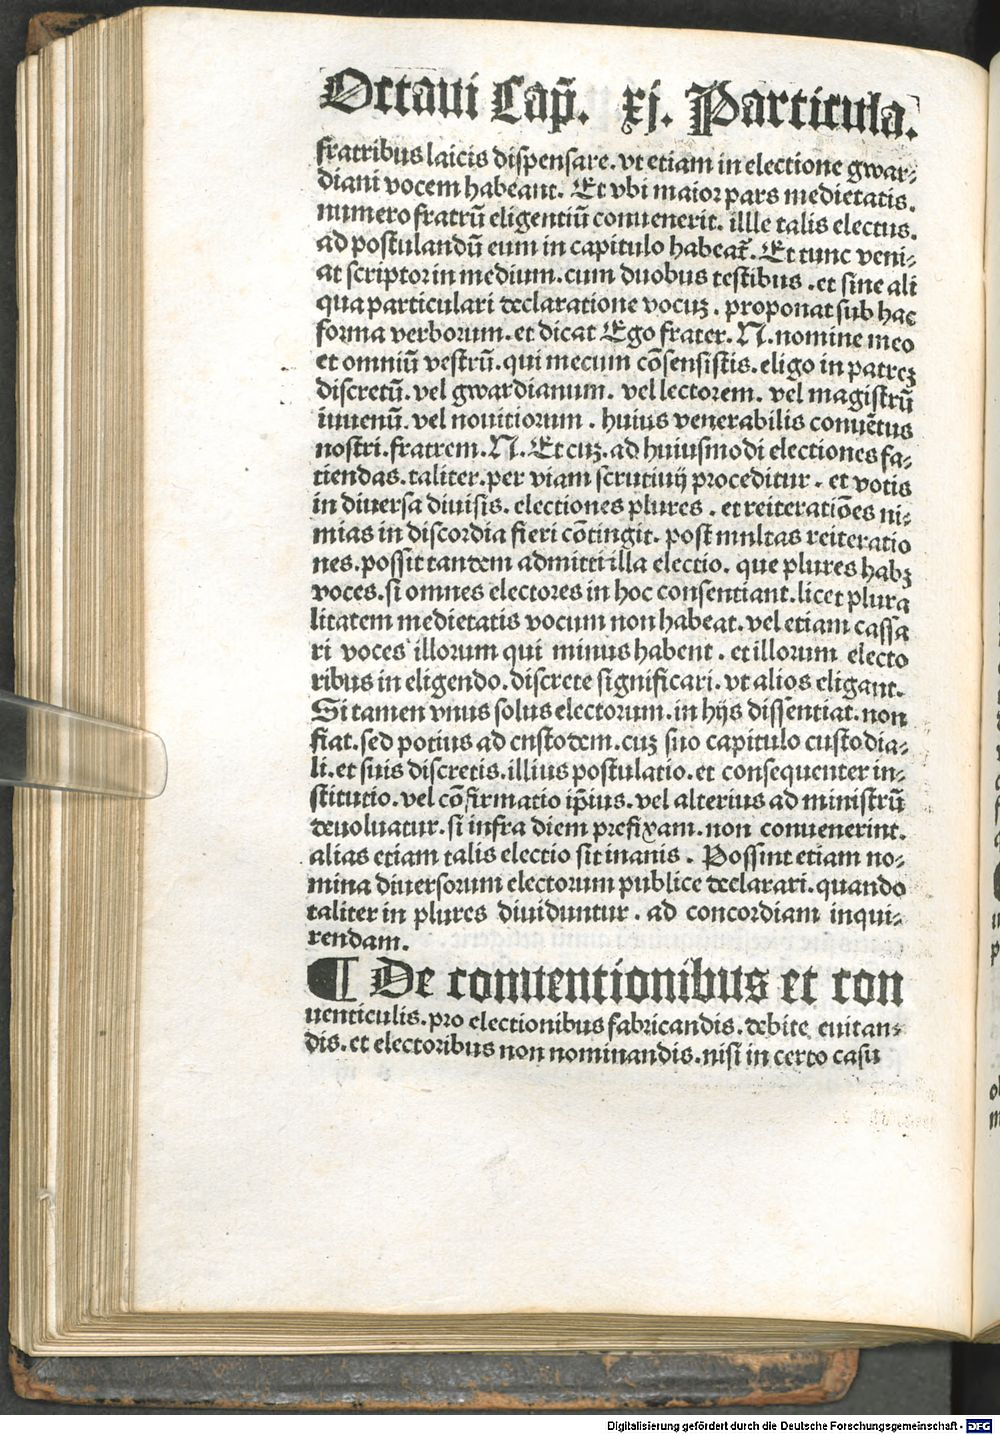 Octaui Cap̄. xj. Particula.
fratribus laicis dispensare. vt etiam in electione gwar⸗
diani vocem habeant. Et vbi maior pars medietatis.
numero fratrū eligentiū conuenerit. illle talis electus.
ad postulandū eum in capitulo habeat̄. Et tunc veni⸗
at scriptor in medium. cum duobus testibus . et sine ali
qua particulari declaratione vocuꝫ . proponat sub hac
forma verborum. et dicat Ego frater. N. nomine meo
et omniū vestrū. qui mecum cōsensistis. eligo in patreꝫ
discretū. vel gwardianum. vel lectorem. vel magistrū
iuuenū. vel nouitiorum . huius venerabilis conuētus
nostri. fratrem. N. Et cuꝫ. ad huiusmodi electiones fa⸗
tiendas. taliter. per viam scrutiuij proceditur . et votis
in diuersa diuisis. electiones plures . et reiteratiōes ni⸗
mias in discordia fieri cōtingit. post mnltas reiteratio
nes. possit tandem admitti illa electio. que plures habꝫ
voces. si omnes electores in hoc consentiant. licet plura
litatem medietatis vocum non habeat. vel etiam cassa
ri voces illorum qui minus habent . et illorum electo
ribus in eligendo. discrete significari. vt alios eligant.
Si tamen vnus solus electorum. in hijs dissentiat. non
fiat. sed potius ad cnstodem. cuꝫ suo capitulo custodia⸗
li. et suis discretis. illius postulatio. et consequenter in⸗
stitutio. vel cōfirmatio ip̄ius. vel alterius ad ministrū
deuoluatur. si infra diem prefixam. non conuenerint.
alias etiam talis electio sit inanis . Possint etiam no⸗
mina diuersorum electorum publice declarari. quando
taliter in plures diuiduntur . ad concordiam inqui⸗
rendam.
¶ De conuentionibus et con
uenticulis. pro electionibus fabricandis. debite euitan⸗
dis. et electoribus non nominandis. nisi in certo casu
Digitalisierung gefördert durch die Deutsche Forschungsgemeinschaft - DFG